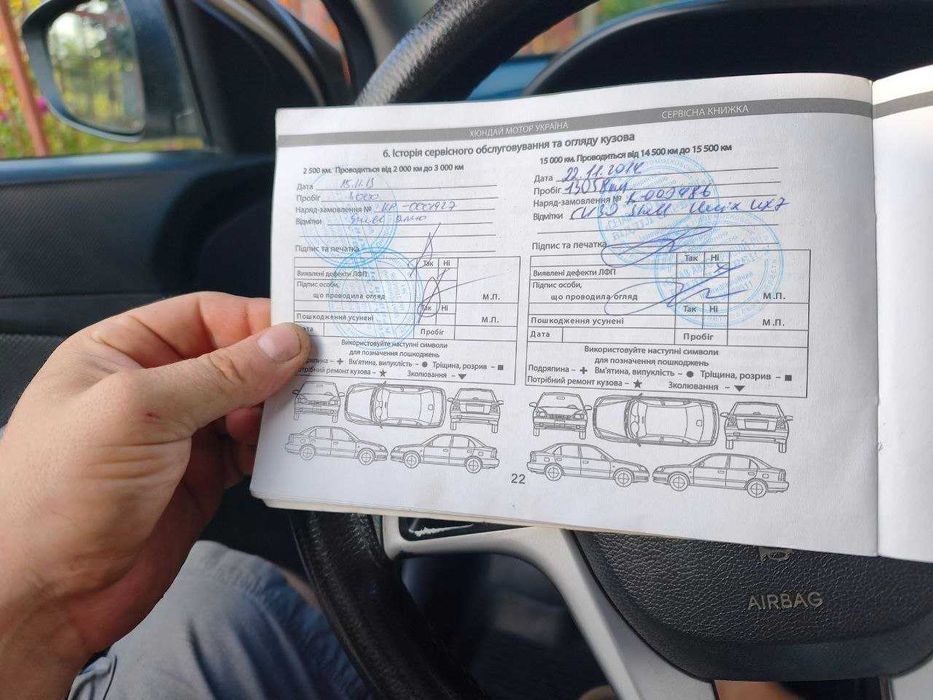 ХЮНДАЙ МОТОР УКРАЇНА
СЕРВІСНА КНИЖКА
6. Історія сервісного обслуговування та огляду кузова
2 500 км. Проводиться від 2 000 км до 3 000 км
Дата 15.11.13
Пробіг 3000
Наряд-замовлення №
Відмітки
Підпис та печатка
Так Ні
Виявлені дефекти ЛФП
Підпис особи,
що проводила огляд М.П.
Так Ні
Пошкодження усунені М.П.
Дата Пробіг
Використовуйте наступні символи
для позначення пошкоджень
Подряпина – + Вм'ятина, випуклість – ● Тріщина, розрив – ■
Потрібний ремонт кузова – ★ Зколювання – ▼
15 000 км. Проводиться від 14 500 км до 15 500 км
Дата 22.11.2014
Пробіг 13058км
Наряд-замовлення №
Відмітки 5W30 Shell Helix HX7
Підпис та печатка
Так Ні
Виявлені дефекти ЛФП
Підпис особи,
що проводила огляд М.П.
Так Ні
Пошкодження усунені М.П.
Дата Пробіг
Використовуйте наступні символи
для позначення пошкоджень
Подряпина – + Вм'ятина, випуклість – ● Тріщина, розрив – ■
Потрібний ремонт кузова – ★ Зколювання – ▼
22
AIRBAG